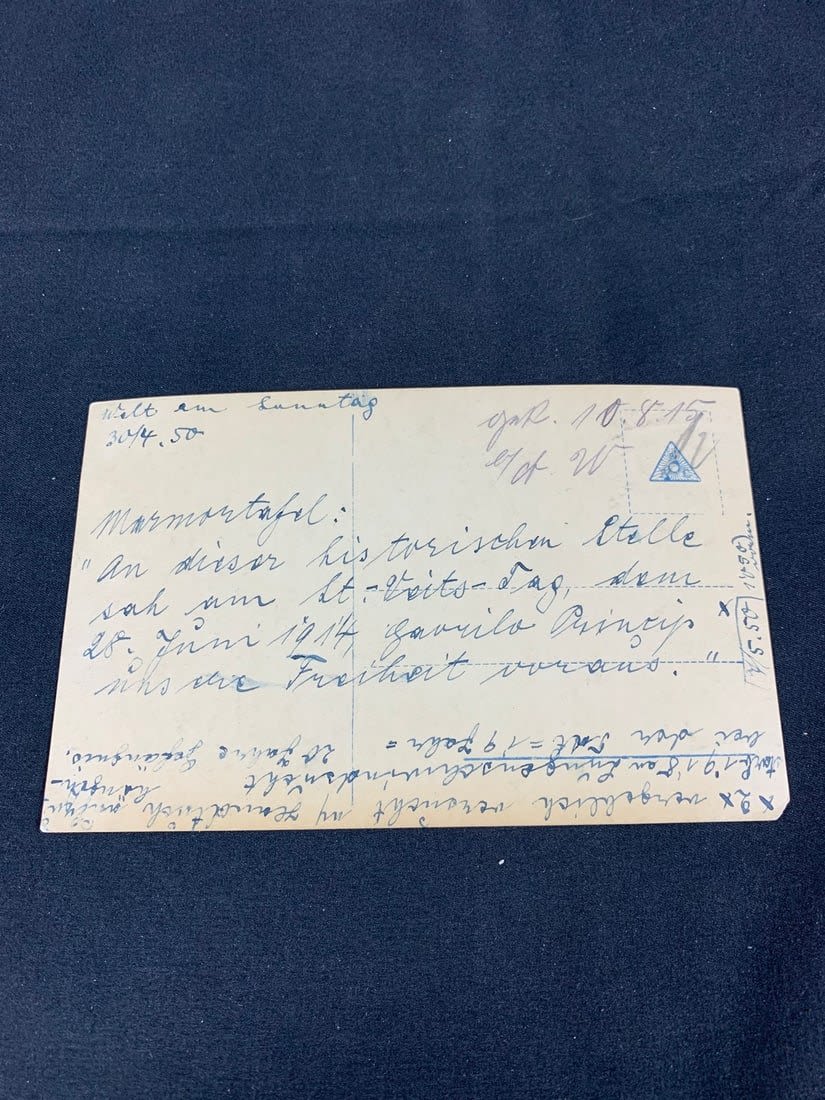 Welt am Sonntag
30/4.50
gek. 10.8.15
Marmortafel:
"An dieser historischen Stelle
sah am St.-Veits-Tag, dem
28. Juni 1914, Gavrilo Princip x
unsere Freiheit voraus."
7/5.50
bei der Tat = 19 Jahr =
20 Jahre Gefängnis.
starb 1918 an Lungenschwindsucht
x 2x vergeblich versucht m/ Handtuch